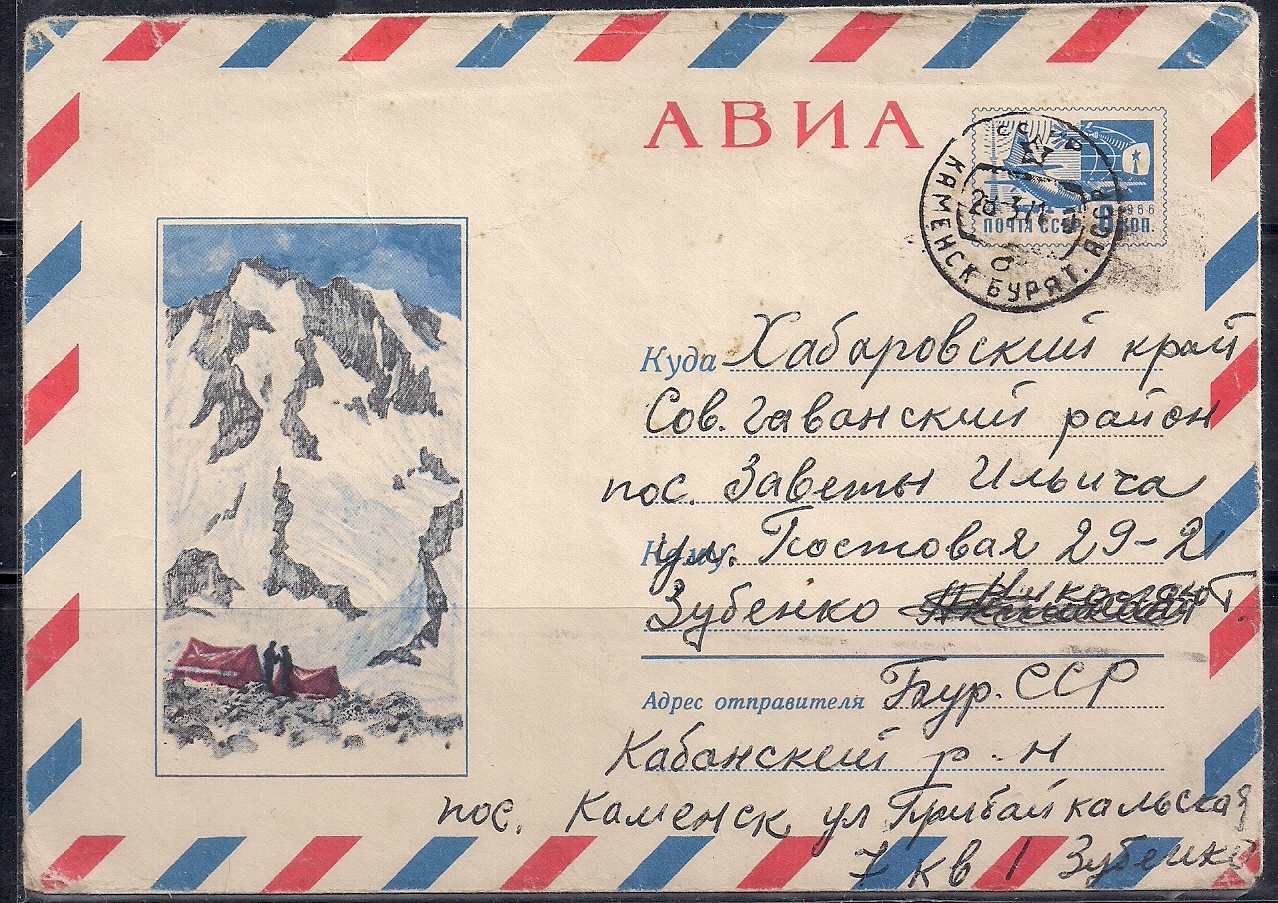 АВИА
КАМЕНСК БУРЯТ. АССР
ПОЧТА СССР 1966 КОП.
Куда Хабаровский край
Сов. гаванский район
пос. Заветы Ильича
Кому ул. Постовая 29-2
Зубенко Т.
Адрес отправителя Бур. ССР
Кабанский р-н
пос. Каменск ул Прибайкальская
7 кв 1 Зубенко